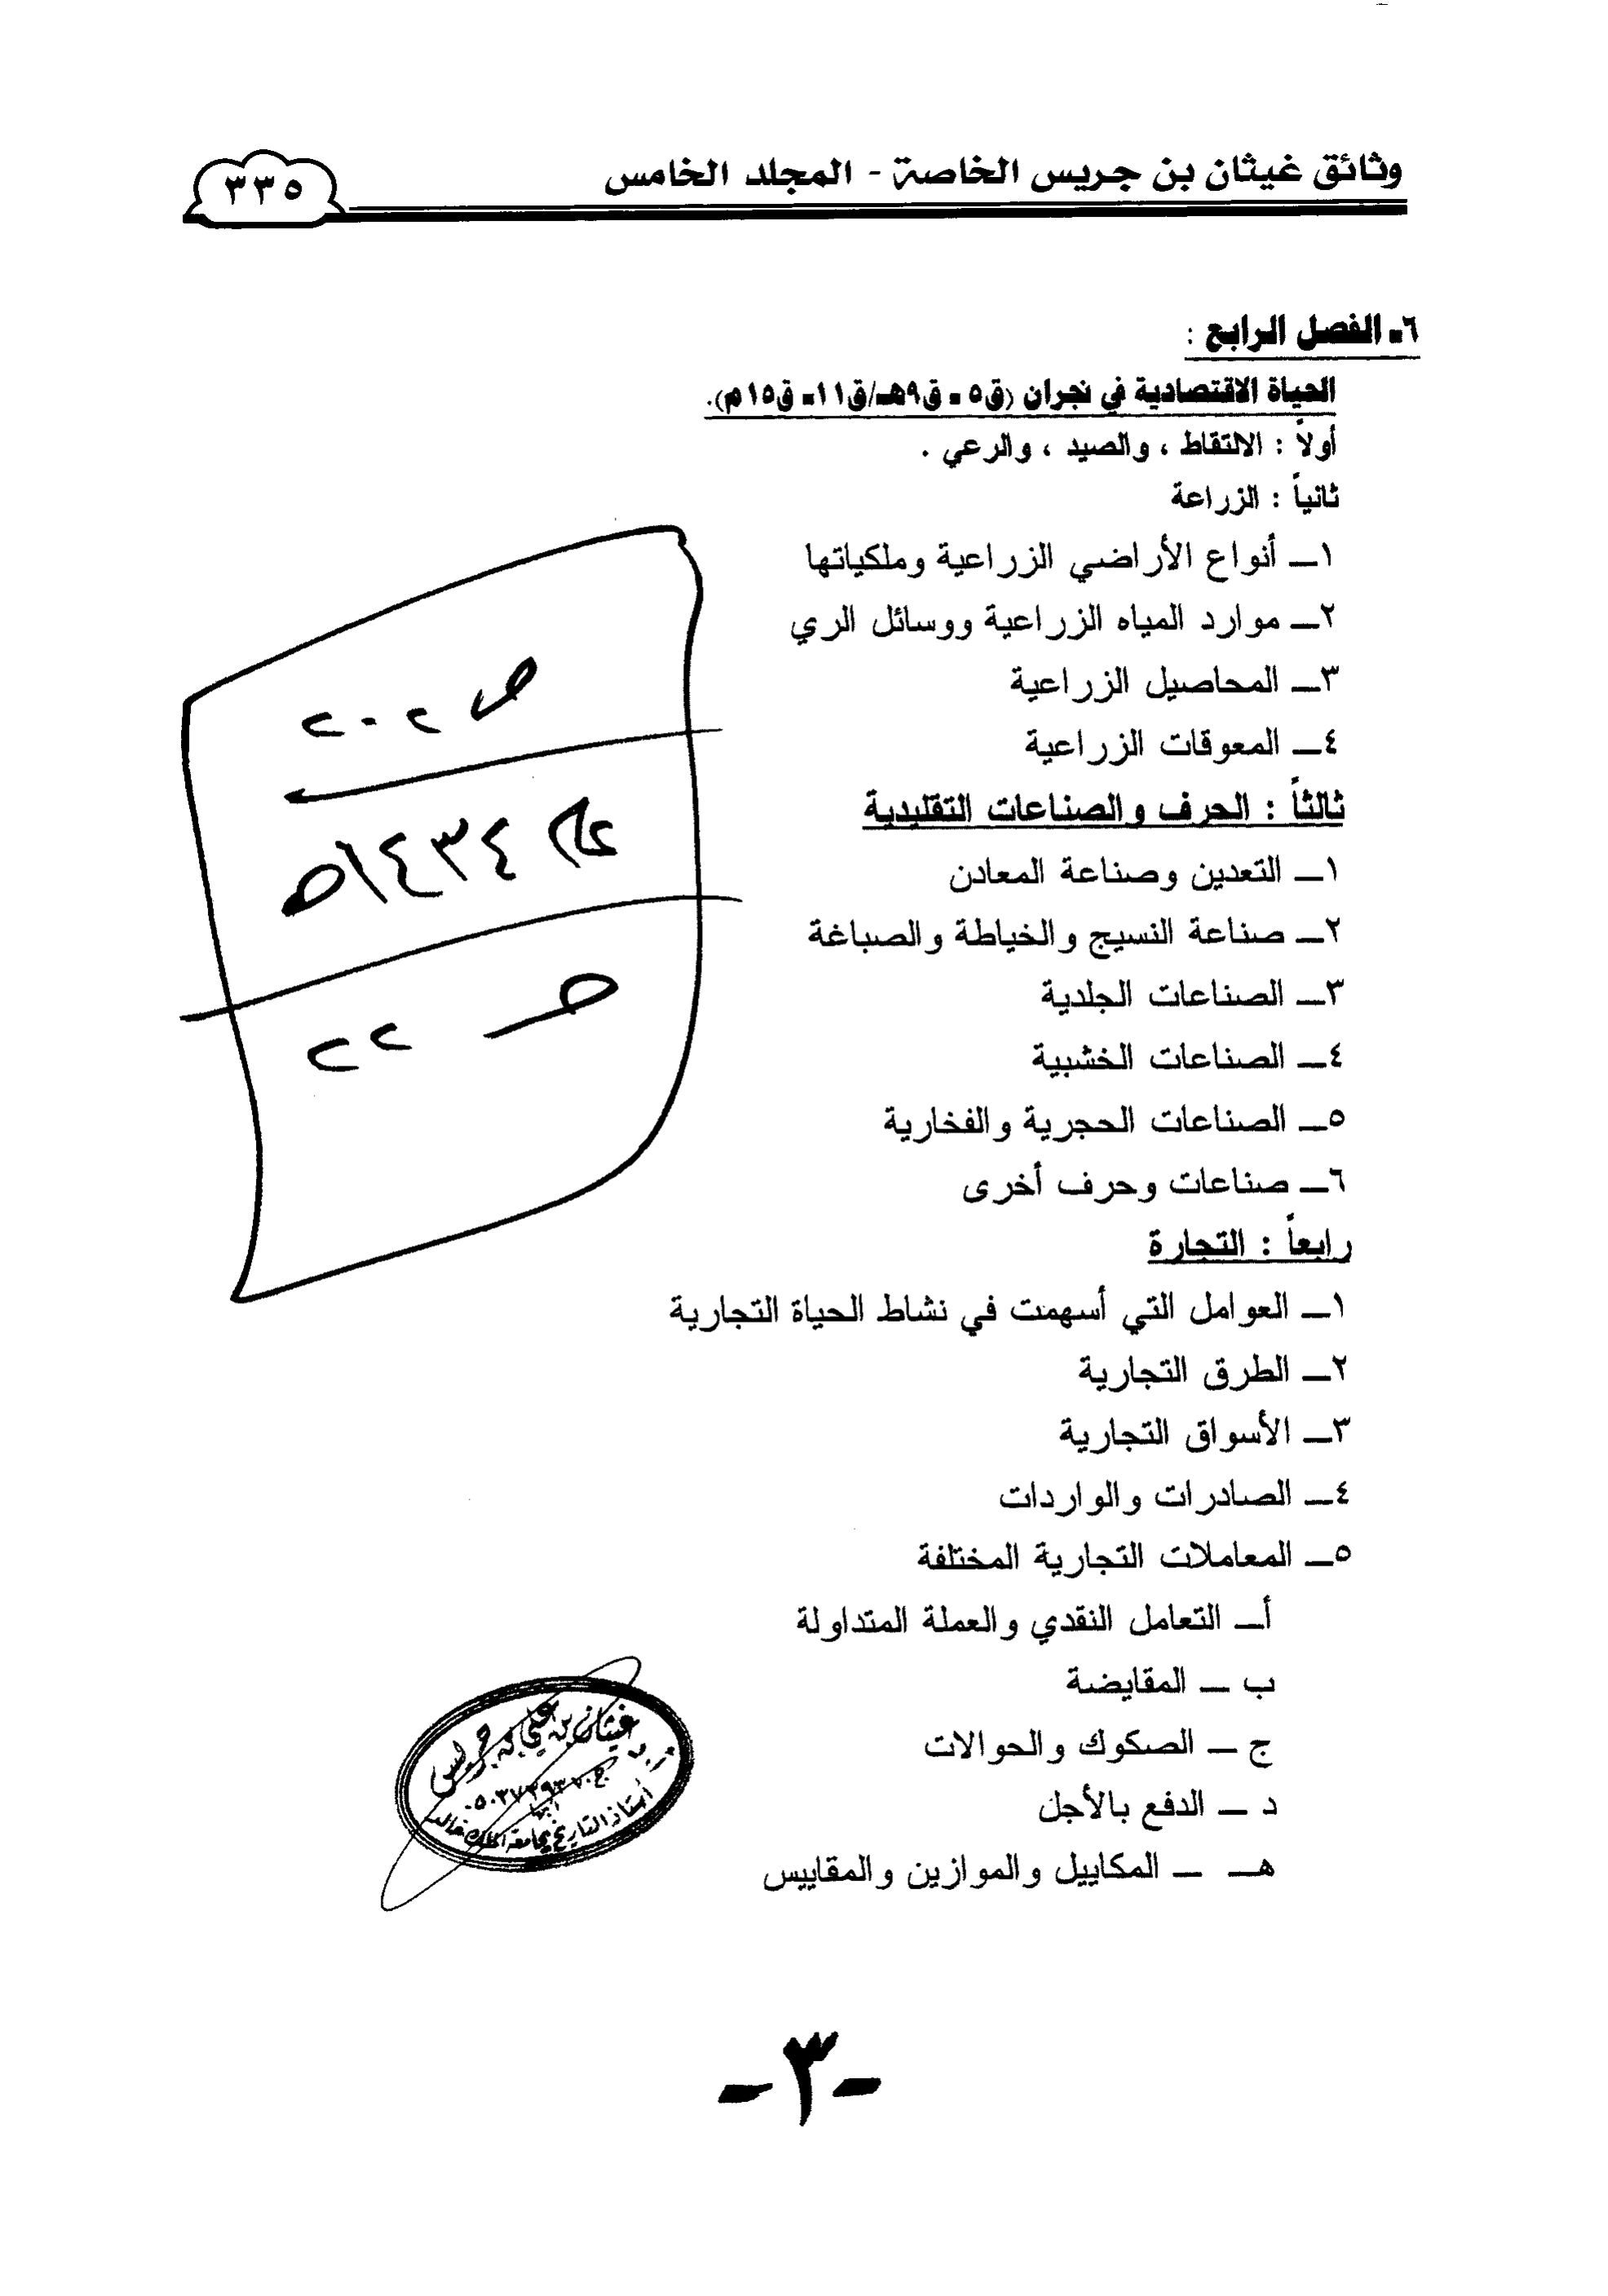 وثائق غيثان بن جريس الخاصة - المجلد الخامس
٣٣٥
٦ـ الفصل الرابع :
الحياة الاقتصادية في نجران (ق٥ ـ ق٩هـ/ق١١ـ ق١٥م).
أولاً : الالتقاط ، والصيد ، والرعي .
ثانياً : الزراعة
١ـ أنواع الأراضي الزراعية وملكياتها
٢ـ موارد المياه الزراعية ووسائل الري
٣ـ المحاصيل الزراعية
٤ـ المعوقات الزراعية
ثالثاً : الحرف والصناعات التقليدية
١ـ التعدين وصناعة المعادن
٢ـ صناعة النسيج والخياطة والصباغة
٣ـ الصناعات الجلدية
٤ـ الصناعات الخشبية
٥ـ الصناعات الحجرية والفخارية
٦ـ صناعات وحرف أخرى
رابعاً : التجارة
١ـ العوامل التي أسهمت في نشاط الحياة التجارية
٢ـ الطرق التجارية
٣ـ الأسواق التجارية
٤ـ الصادرات والواردات
٥ـ المعاملات التجارية المختلفة
أـ التعامل النقدي والعملة المتداولة
ب ـ المقايضة
ج ـ الصكوك والحوالات
د ـ الدفع بالأجل
هـ ـ المكاييل والموازين والمقاييس
ص ٢٠٢
١٤٣٤هـ
صـ ٢٢
أ.د. غيثان بن علي بن جريس
أبها
أستاذ التاريخ بجامعة الملك خالد
-٣-